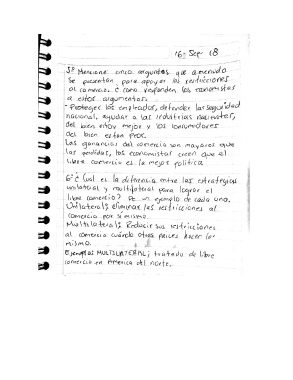 16-Sep-18
5° Mencione cinco argumentos que a menudo
se presentan para apoyar las restricciones
al comercio. ¿Como responden los economistas
a estos argumentos.
- Proteger los empleados, defender la seguridad
nacional, ayudar a las industrias nacientes,
del bien estan mejor y los consumidores
del bien estan peor.
Las ganancias del comercio son mayores que
las perdidas, los economistas creen que el
libre comercio es la mejor politica
6° ¿Cual es la diferencia entre las estrategias
unilateral y multilateral para lograr el
libre comercio? De un ejemplo de cada una.
Unilateral: Eliminar las restricciones al
comercio por si mismo.
Multilateral: Reducir sus restricciones
al comercio cuándo otros paises hacen lo
mismo.
Ejemplos MULTILATERAL: tratado de libre
comercio en America del norte.